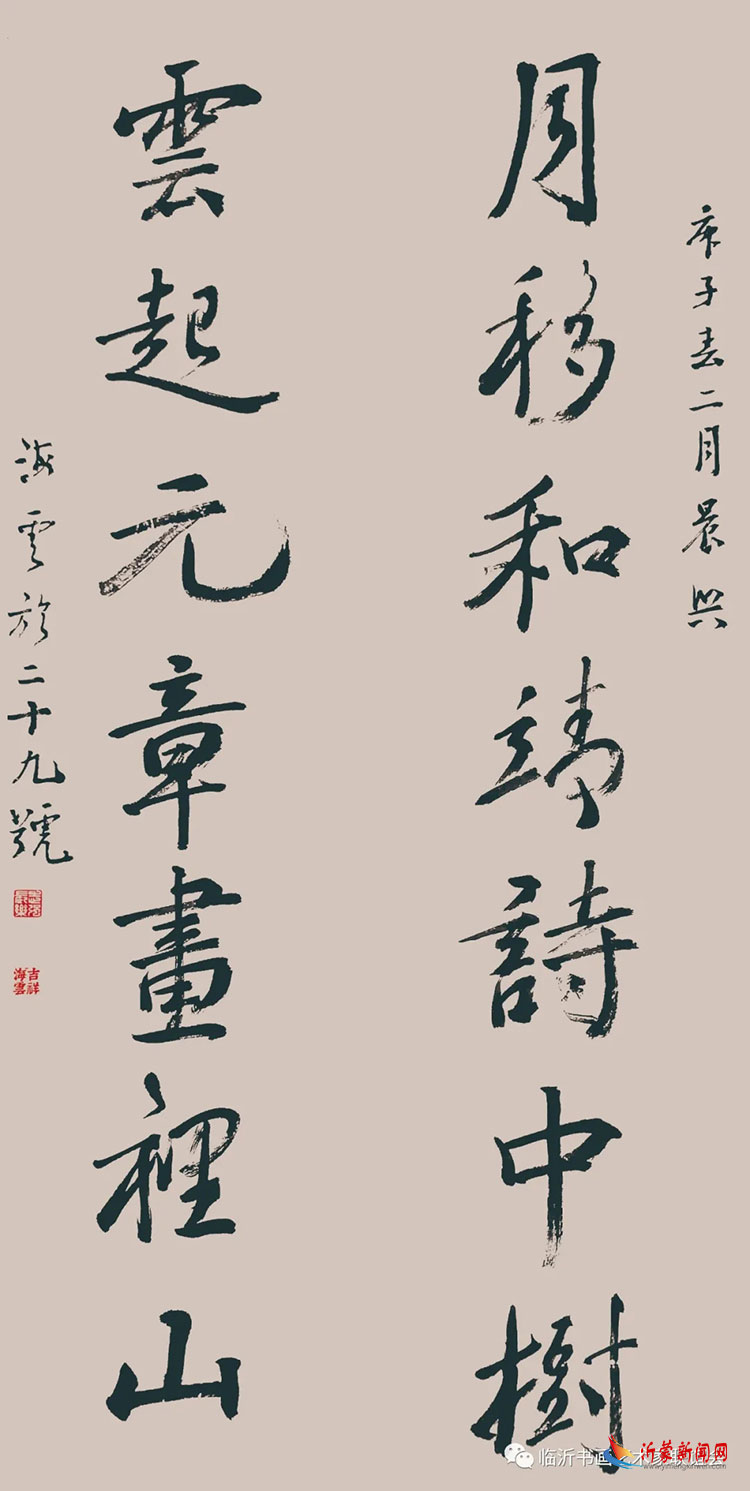 庚子春二月晨興
月移和靖詩中樹
雲起元章畫裡山
海雲於二十九號
吉祥
海雲
临沂书画艺术家联谊会
沂蒙新闻网
www.yimengxinwen.com